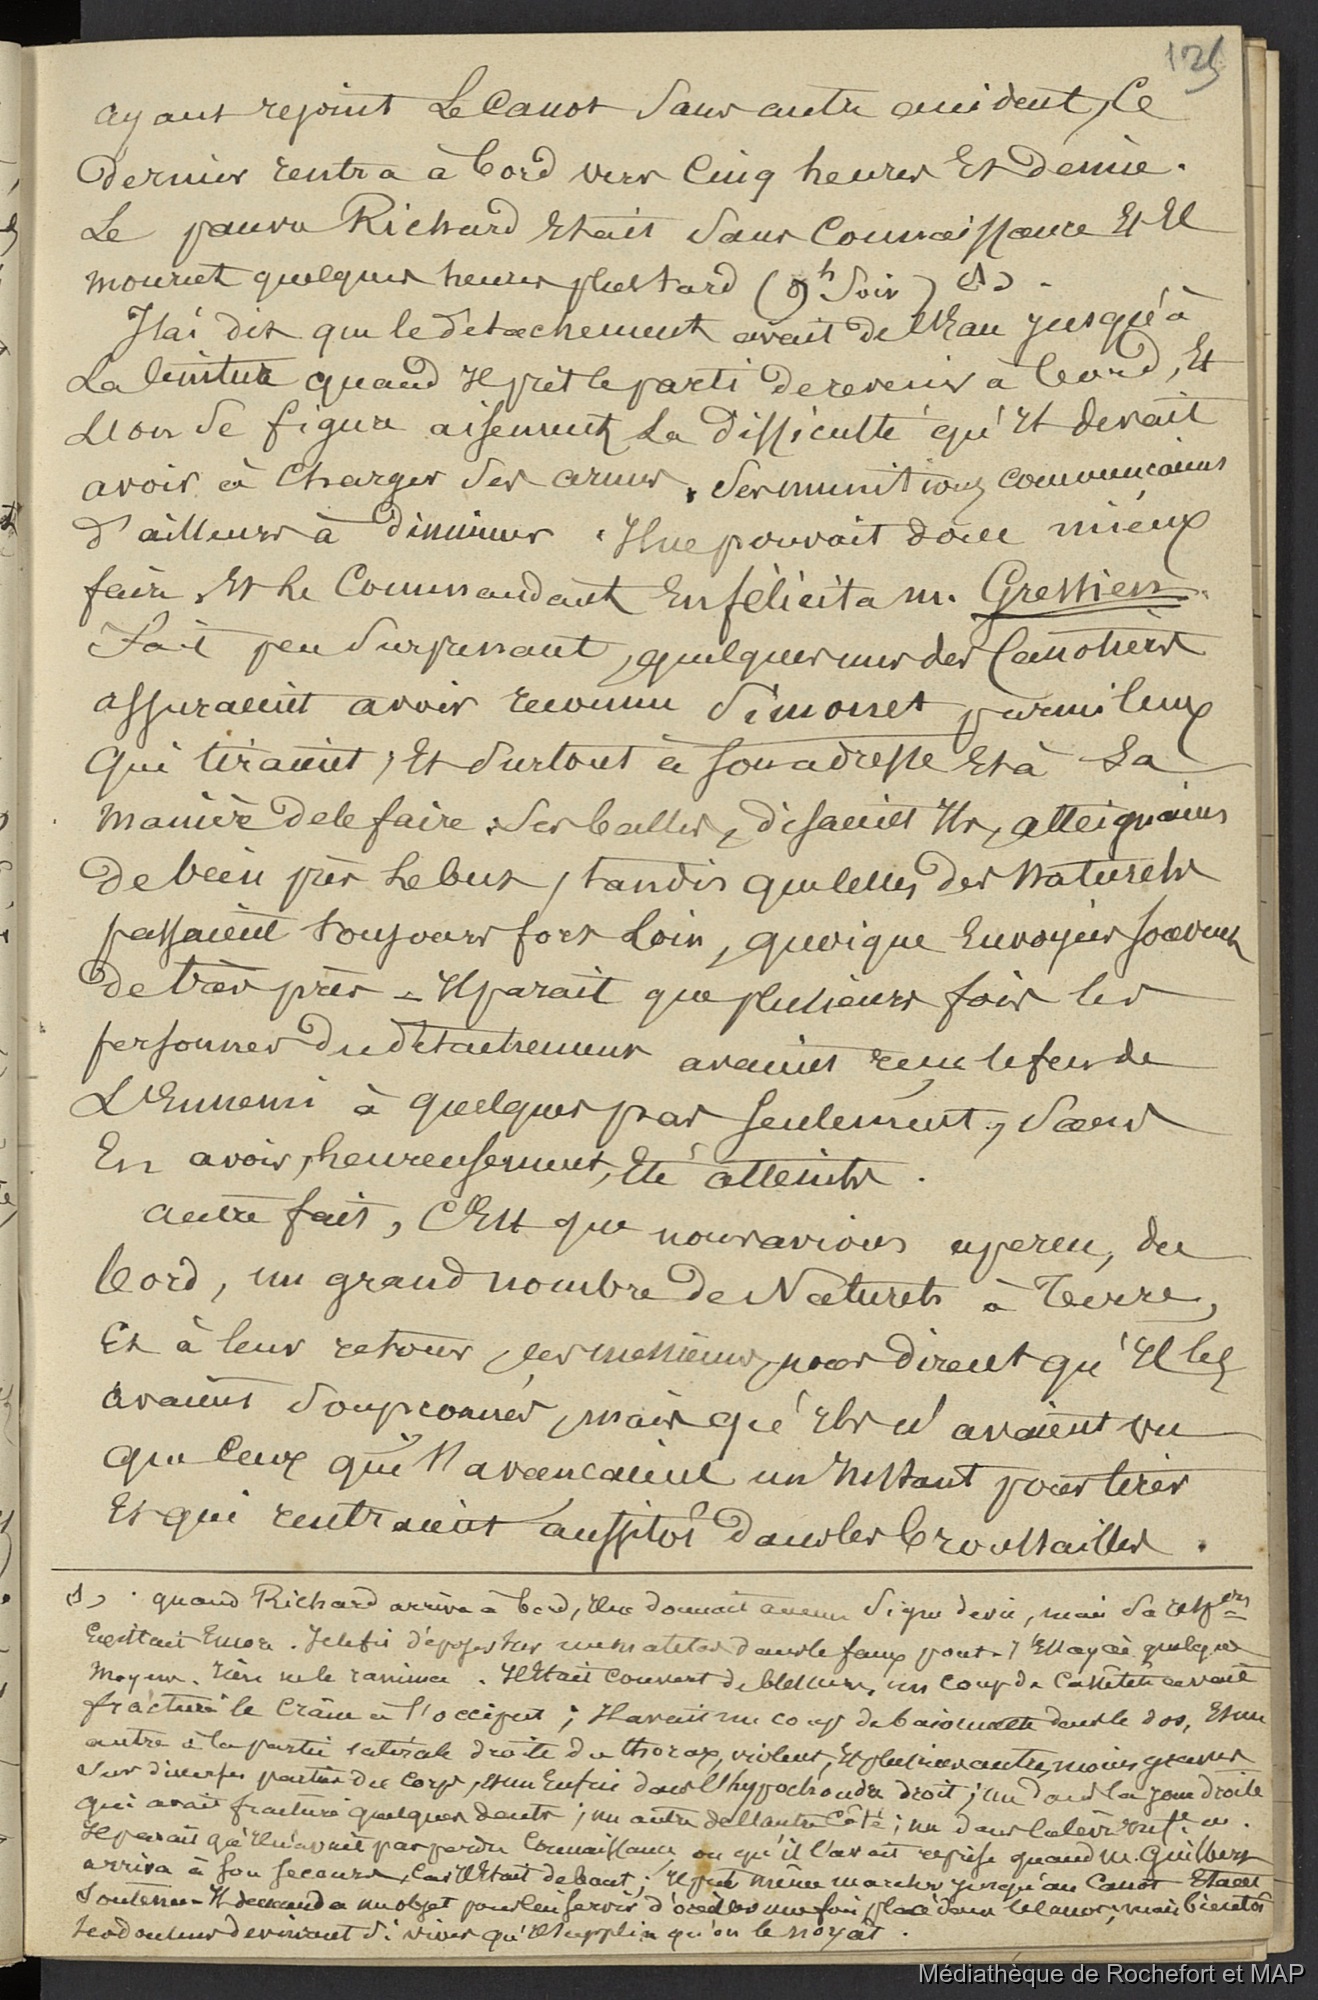 125
ayant rejoint Le Canot Sans autre accident, Ce
dernier rentra à bord vers Cinq heures Et Demie.
Le pauvre Richard Etait Sans Connaissance Et Il
mourut quelques heures plus tard (9h Soir) (1).
J'ai dit que le détachement avait de L'Eau jusqu'à
La Ceinture quand Il prit le parti de revenir à bord, Et
L'on Se figure aisement La Difficulté qu'Il devait
avoir à Charger Ses armes. Ses munitions commençaient
d'ailleurs à Diminuer. Il ne pouvait donc mieux
faire, Et Le Commandant En félicita M. Gressien.
Fait peu Surprenant, quelques uns des Canotiers
assuraient avoir reconnu Simonet parmi Ceux
Qui tiraient, Et Surtout à Son adresse Et à La
Manière de le faire. Ses balles, disaient Ils, atteignaient
de bien près Le but, tandis que Celles des Naturels
passaient toujours fort Loin, quoique Envoyées souvent
de très près - Il parait que plusieurs fois les
personnes Du Détachement avaient reçu le feu de
L'Ennemi à quelques pas Seulement, Sans
En avoir, heureusement, Eté atteints.
Autre fait, C'Est que nous avions aperçu, du
bord, un grand nombre de Naturels à Terre,
Et à leur retour, ces messieurs, nous dirent qu'Il les
avaient Soupçonnés, mais qu'Ils n'avaient vu
que Ceux qui s'avancaient un Instant pour tirer
Et qui rentraient aussitôt Dans les broussailles.
(1). quand Richard arriva à bord, Il ne donnait aucun Signe de vie, mais Sa resp.on
Existait Encore. Je le fis déposer Sur un matelas dans le faux pont. J'Essayai quelques
Moyens. Rien ne le ranima. Il Etait couvert de blessures, un coup de Cassetête avait
fracturé le Crâne à l'occiput; Il avait un coup de baionnette dans le dos, Et un
autre à la partie latérale droite du thorax, violent, Et plusieurs autres moins graves
Sur diverses parties du Corps, Et un Enfin dans L'hypochondre droit; un dans la joue droite
qui avait fracturé quelques dents; un autre de L'autre Côté; un dans la lèvre inf.re &.
Il parait qu'Il n'avait pas perdu Connaissance ou qu'il l'avait reprise quand M. Guilbert
arriva à Son Secours, Car Il Etait debout; Il put même marcher jusqu'au Canot Etant
Soutenu - Il demanda un objet pour lui Servir d'oreiller une fois placé dans le Canot; mais bientôt
Ses douleurs devinrent Si vives qu'Il supplia qu'on le noyât.
Médiathèque de Rochefort et MAP